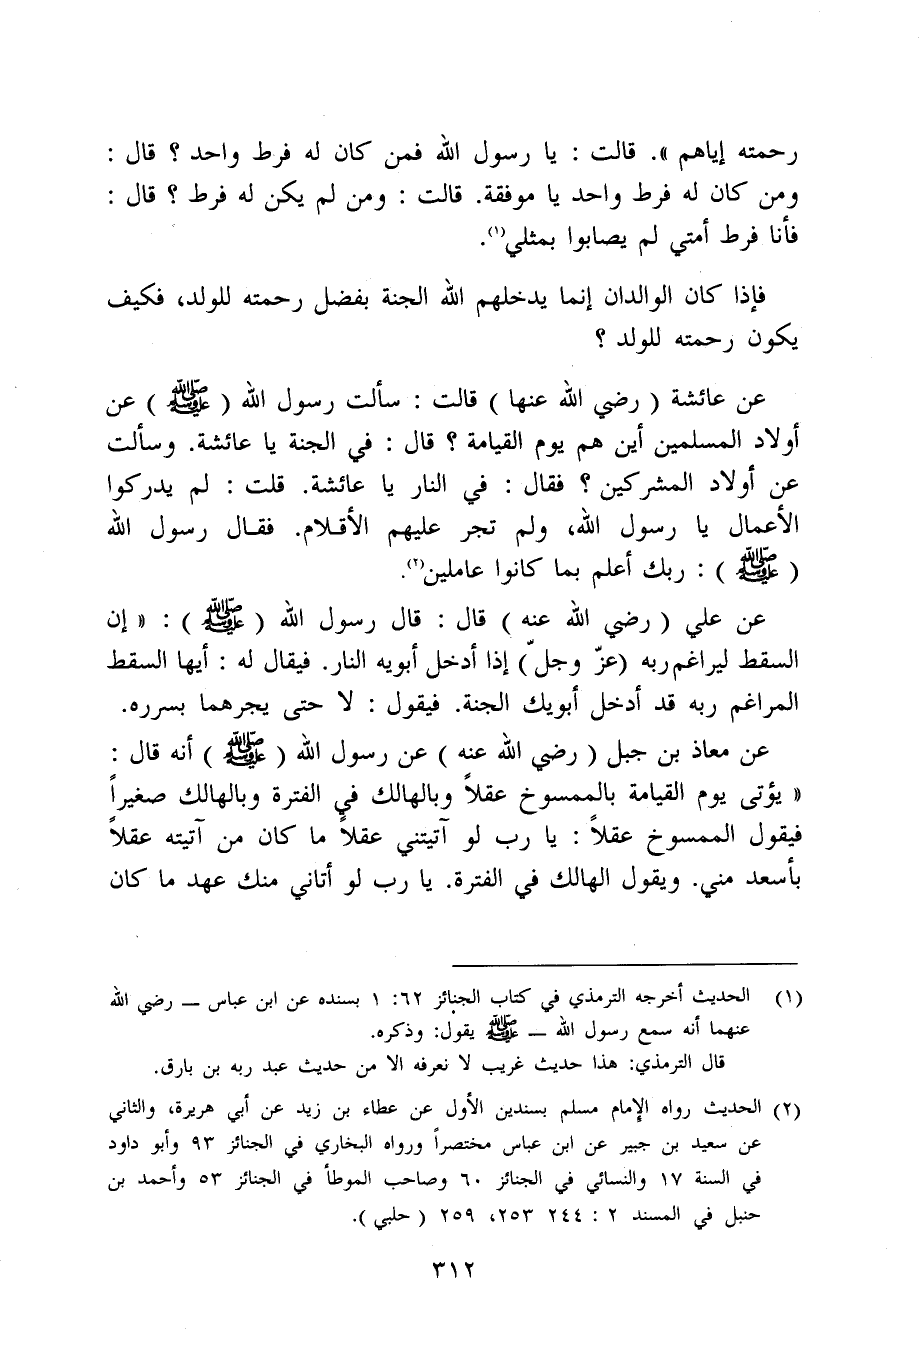 رحمته إياهم ». قالت : يا رسول الله فمن كان له فرط واحد ؟ قال :
ومن كان له فرط واحد يا موفقة. قالت : ومن لم يكن له فرط ؟ قال :
فأنا فرط أمتي لم يصابوا بمثلي(١).
فإذا كان الوالدان إنما يدخلهم الله الجنة بفضل رحمته للولد، فكيف
يكون رحمته للولد ؟
عن عائشة ( رضي الله عنها ) قالت : سألت رسول الله ( ﷺ ) عن
أولاد المسلمين أين هم يوم القيامة ؟ قال : في الجنة يا عائشة. وسألت
عن أولاد المشركين ؟ فقال : في النار يا عائشة. قلت : لم يدركوا
الأعمال يا رسول الله، ولم تجر عليهم الأقـلام. فقـال رسول الله
( ﷺ ) : ربك أعلم بما كانوا عاملين(٢).
عن علي ( رضي الله عنه ) قال : قال رسول الله ( ﷺ ) : « إن
السقط ليراغم ربه (عزّ وجلّ) إذا أدخل أبويه النار. فيقال له : أيها السقط
المراغم ربه قد أدخل أبويك الجنة. فيقول : لا حتى يجرهما بسرره.
عن معاذ بن جبل ( رضي الله عنه ) عن رسول الله ( ﷺ ) أنه قال :
« يؤتى يوم القيامة بالممسوخ عقلاً وبالهالك في الفترة وبالهالك صغيراً
فيقول الممسوخ عقلاً : يا رب لو آتيتني عقلاً ما كان من آتيته عقلاً
بأسعد مني. ويقول الهالك في الفترة. يا رب لو أتاني منك عهد ما كان
(١) الحديث أخرجه الترمذي في كتاب الجنائز ٦٢: ١ بسنده عن ابن عباس ــ رضي الله
عنهما أنه سمع رسول الله ــ ﷺ يقول: وذكره.
قال الترمذي: هذا حديث غريب لا نعرفه الا من حديث عبد ربه بن بارق.
(٢) الحديث رواه الإمام مسلم بسندين الأول عن عطاء بن زيد عن أبي هريرة، والثاني
عن سعيد بن جبير عن ابن عباس مختصراً ورواه البخاري في الجنائز ٩٣ وأبو داود
في السنة ١٧ والنسائي في الجنائز ٦٠ وصاحب الموطأ في الجنائز ٥٣ وأحمد بن
حنبل في المسند ٢ : ٢٤٤ ٢٥٣، ٢٥٩ ( حلبي ).
٣١٢